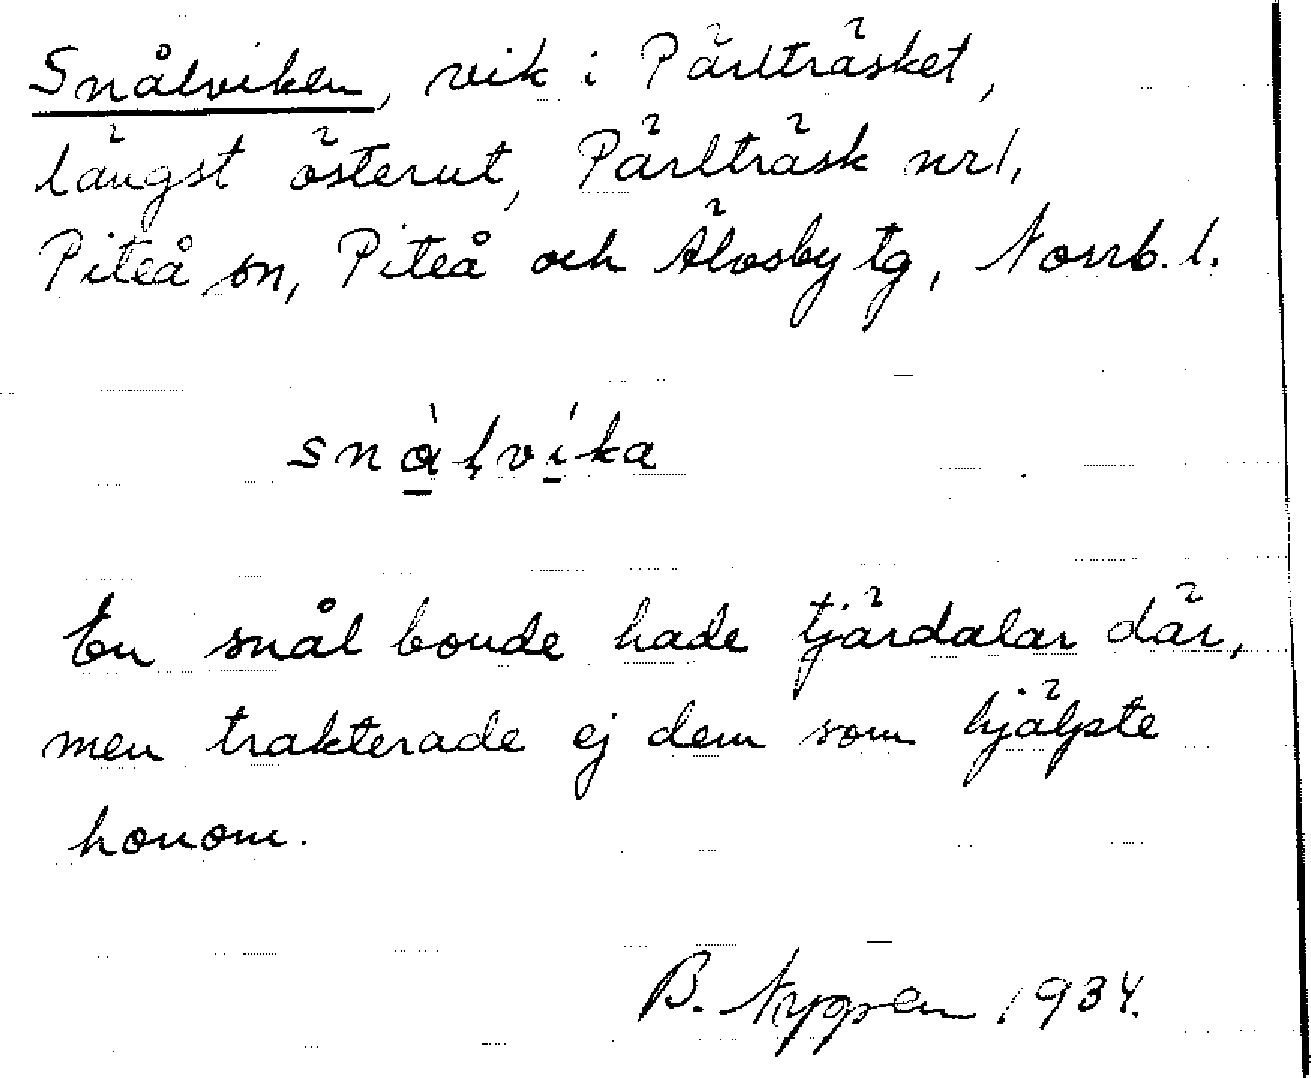 Snålviken, vik i Pärlträsket,
längst österut, Pärlträsk nr 1,
Piteå sn, Piteå och Älvsby tg, Norrb. l.
snålvika
En snål bonde hade tjärdalar där,
men trakterade ej dem som hjälpte
honom.
B. Nygren 1934.